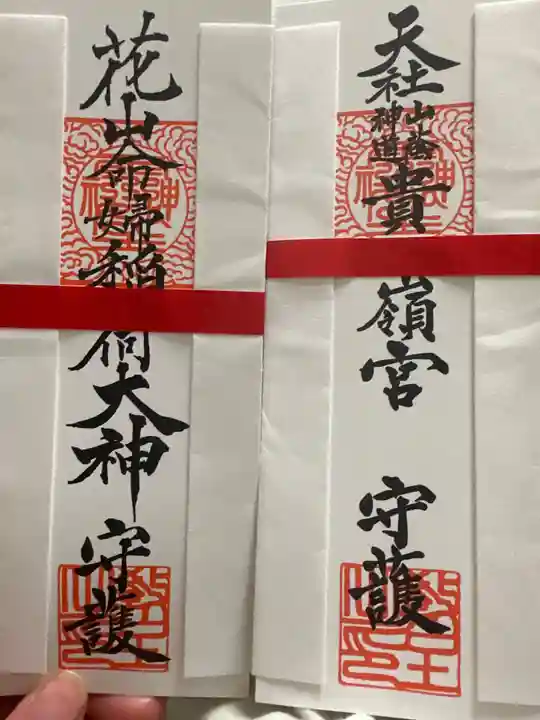 天社
山蔭
神道
貴嶺宮
守護
花山命婦稲荷大神
守護